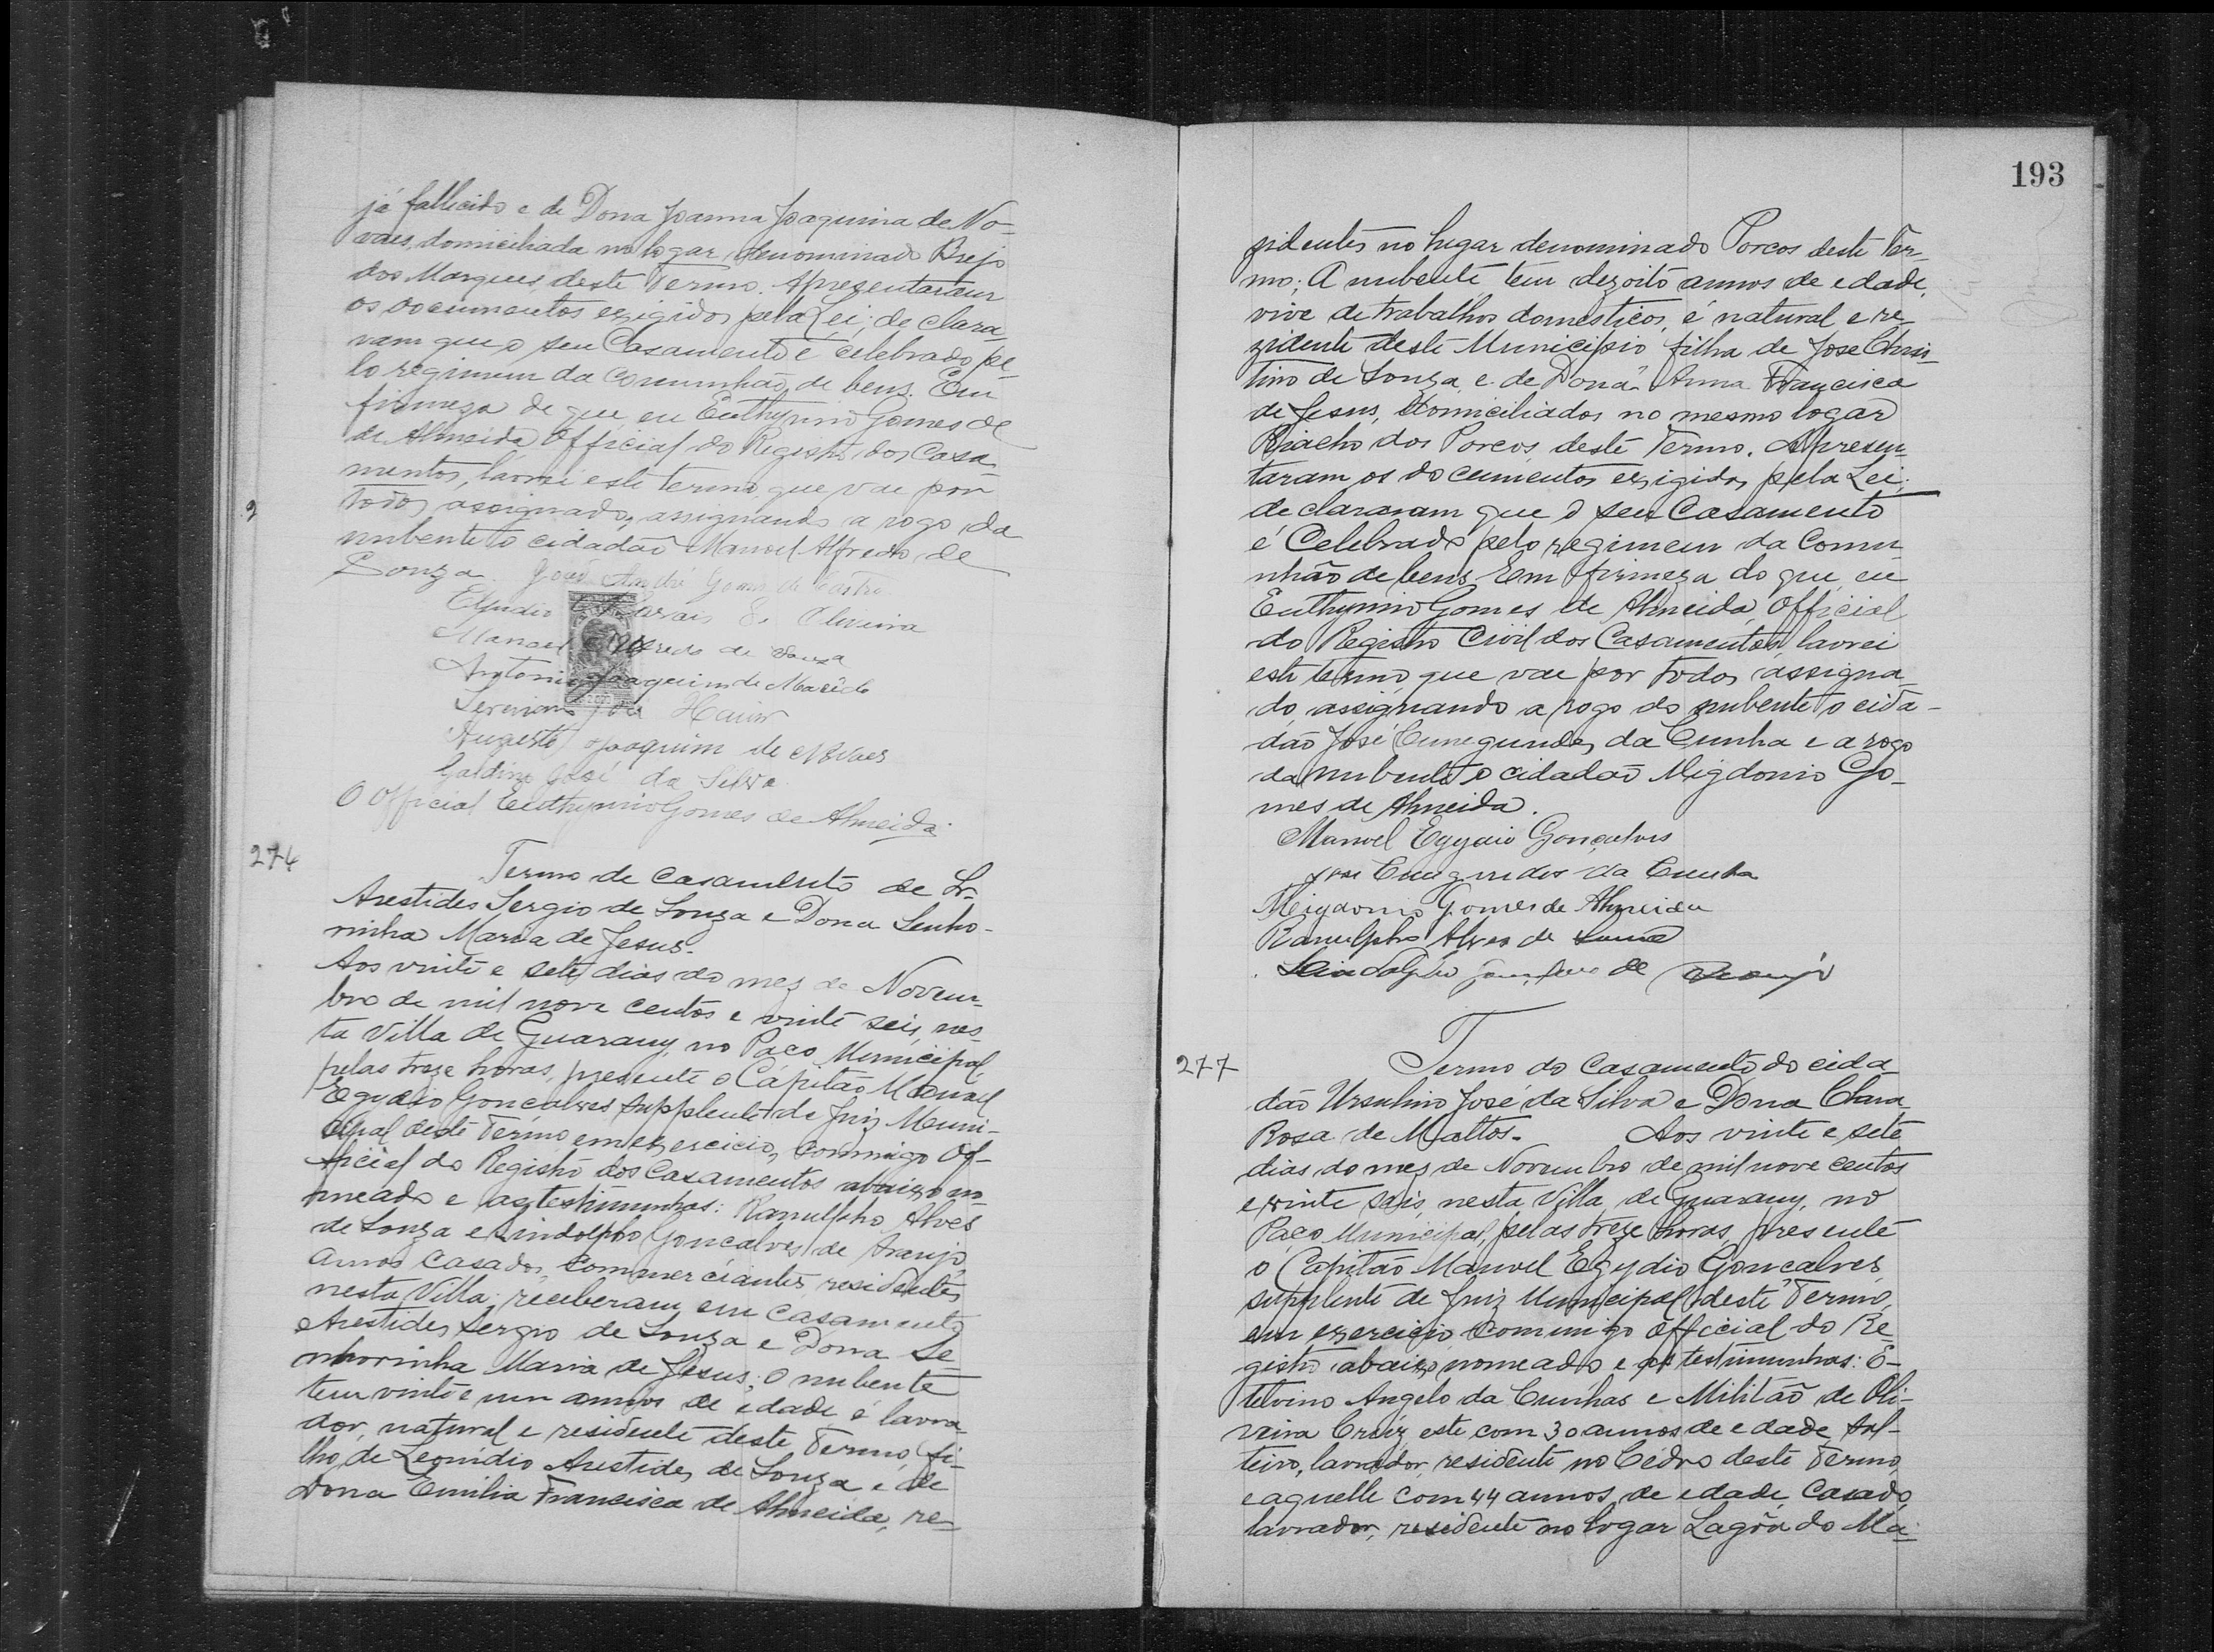 já fallecido e de Dona Joanna Joaquina de No-
vaes, domiciliada no logar denominado Brejo
dos Marques deste Termo. Apresentaram
os documentos exigidos pela Lei; de clara
ram que o seu Casamento é celebrado pe
lo regimem da comunhão de bens. Em
firmeza de que, eu Euthymio Gomes de
de Almeida Official do Registro dos Casa
mentos, lavrei este termo que vae por
todos assignado, assignando a rogo da
nubente o cidadão Manoel Alfredo de
Souza. João André Gomes de Castro
Elpidio de Oliveira
Manoel Alfredo de Souza
Antonio Joaquim de Macêdo
José
Augusto Joaquim de Novaes
Galdino José da Silva
O Official Euthymio Gomes de Almeida.
274
Termo de casamento de Sr.
Arestides Sergio de Souza e Dona Senho-
rinha Maria de Jesus.
Aos vinte e sete dias do mez de Novem-
bro de mil nove centos e vinte seis, nes
ta Villa de Guarany, no Paço Municipal,
pelas treze horas, presente o Capitão Manoel
Egydio Gonçalves supplente de Juiz Muni-
cipal deste Termo em exercicio, commigo Of-
ficial do Registro dos Casamentos abaixo no
meado e as testimunhas: Ranulpho Alves
de Souza e Lindolpho Gonçalves de Araujo,
amos casados, commerciantes, residentes
nesta Villa; receberam em casamento
Arestides Sergio de Souza e Dona Se
nhorinha Maria de Jesus; O nubente
tem vinte e um annos de edade, é lavra
dor, natural e residente deste Termo, fi-
lho de Leonidio Arestides de Souza e de
Dona Emilia Francisca de Almeida, re-
193
zidentes no lugar denominado Porcos deste Ter-
mo; A nubente tem dezoito annos de edade,
vive de trabalhos domesticos, é natural e re
zidente deste Municipio filha de José Chris-
tino de Souza, e de Dona Anna Francisca
de Jesus, domiciliados no mesmo logar
Riacho dos Porcos, deste Termo. Apresen-
taram os documentos exigidos pela Lei;
de clararam que o seu Casamento
é Celebrado pelo regimem da Comu-
nhão de bens. Em firmeza do que, eu
Euthymio Gomes de Almeida, Official
do Registro Civil dos Casamentos, lavrei
este termo, que vae por todos assigna-
do, assignando a rogo do nubente o cida-
dão José Cunegundes da Cunha e a rogo
da nubente o cidadão Migdonio Go-
mes de Almeida.
Manoel Egydio Gonçalves
José Cunegundes da Cunha
Migdonio Gomes de Almeida
Ranulpho Alves de Souza
Lindolpho Gonçalves de Araujo
277
Termo do Casamento do cida-
dão Ursulino José da Silva e Dona Clara
Rosa de Mattos. Aos vinte e sete
dias do mez de Novembro de mil nove centos
e vinte seis, nesta Villa de Guarany, no
Paço Municipal, pelas treze horas, presente
o Capitão Manoel Egydio Gonçalves,
supplente de Juiz Municipal deste Termo,
em exercicio, commigo Official do Re
gistro abaixo nomeado e as testimunhas: E-
telvino Angelo da Cunhas e Militão de Oli-
veira Cruz, este com 30 annos de edade, sol-
teiro, lavrador, residente no Cédro deste Termo,
e aquelle com 44 annos, de edade, casado,
lavrador, residente no logar Lagôa do Ma-